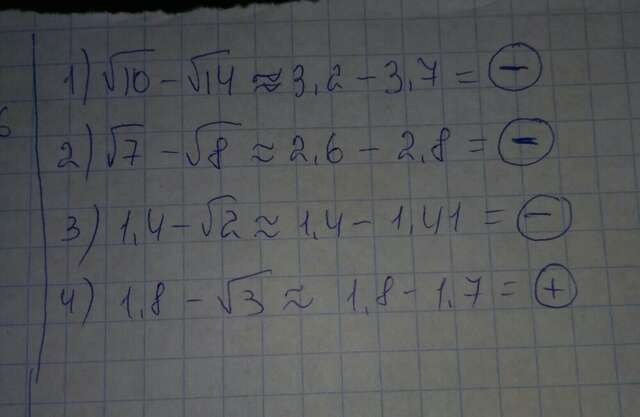 1) √10 − √14 ≈ 3,2 − 3,7 = ⊖
2) √7 − √8 ≈ 2,6 − 2,8 = ⊖
3) 1,4 − √2 ≈ 1,4 − 1,41 = ⊖
4) 1,8 − √3 ≈ 1,8 − 1,7 = ⊕